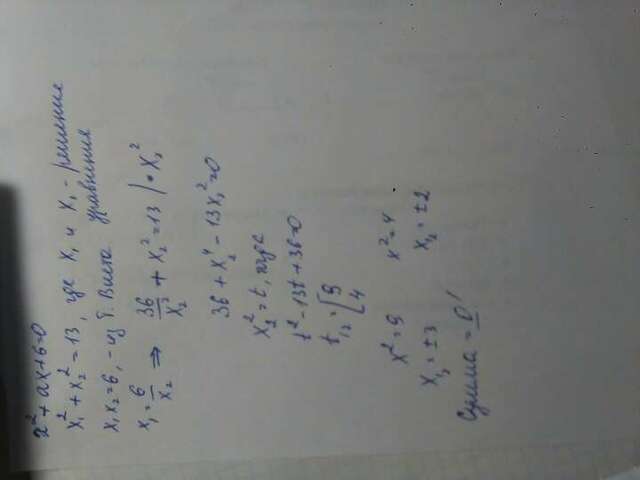 x²+ax+6=0
x₁²+x₂²=13, где x₁ и x₂ - решения уравнения
x₁x₂=6, - из т. Виета
x₁=6/x₂ ⇒ 36/x₂²+x₂²=13 | • x₂²
36+x₂⁴-13x₂²=0
x₂²=t, тогда
t²-13t+36=0
t₁,₂=[9 4
x²=9 x²=4
x₁,₂=±3 x₁,₂=±2
Сумма = 0!